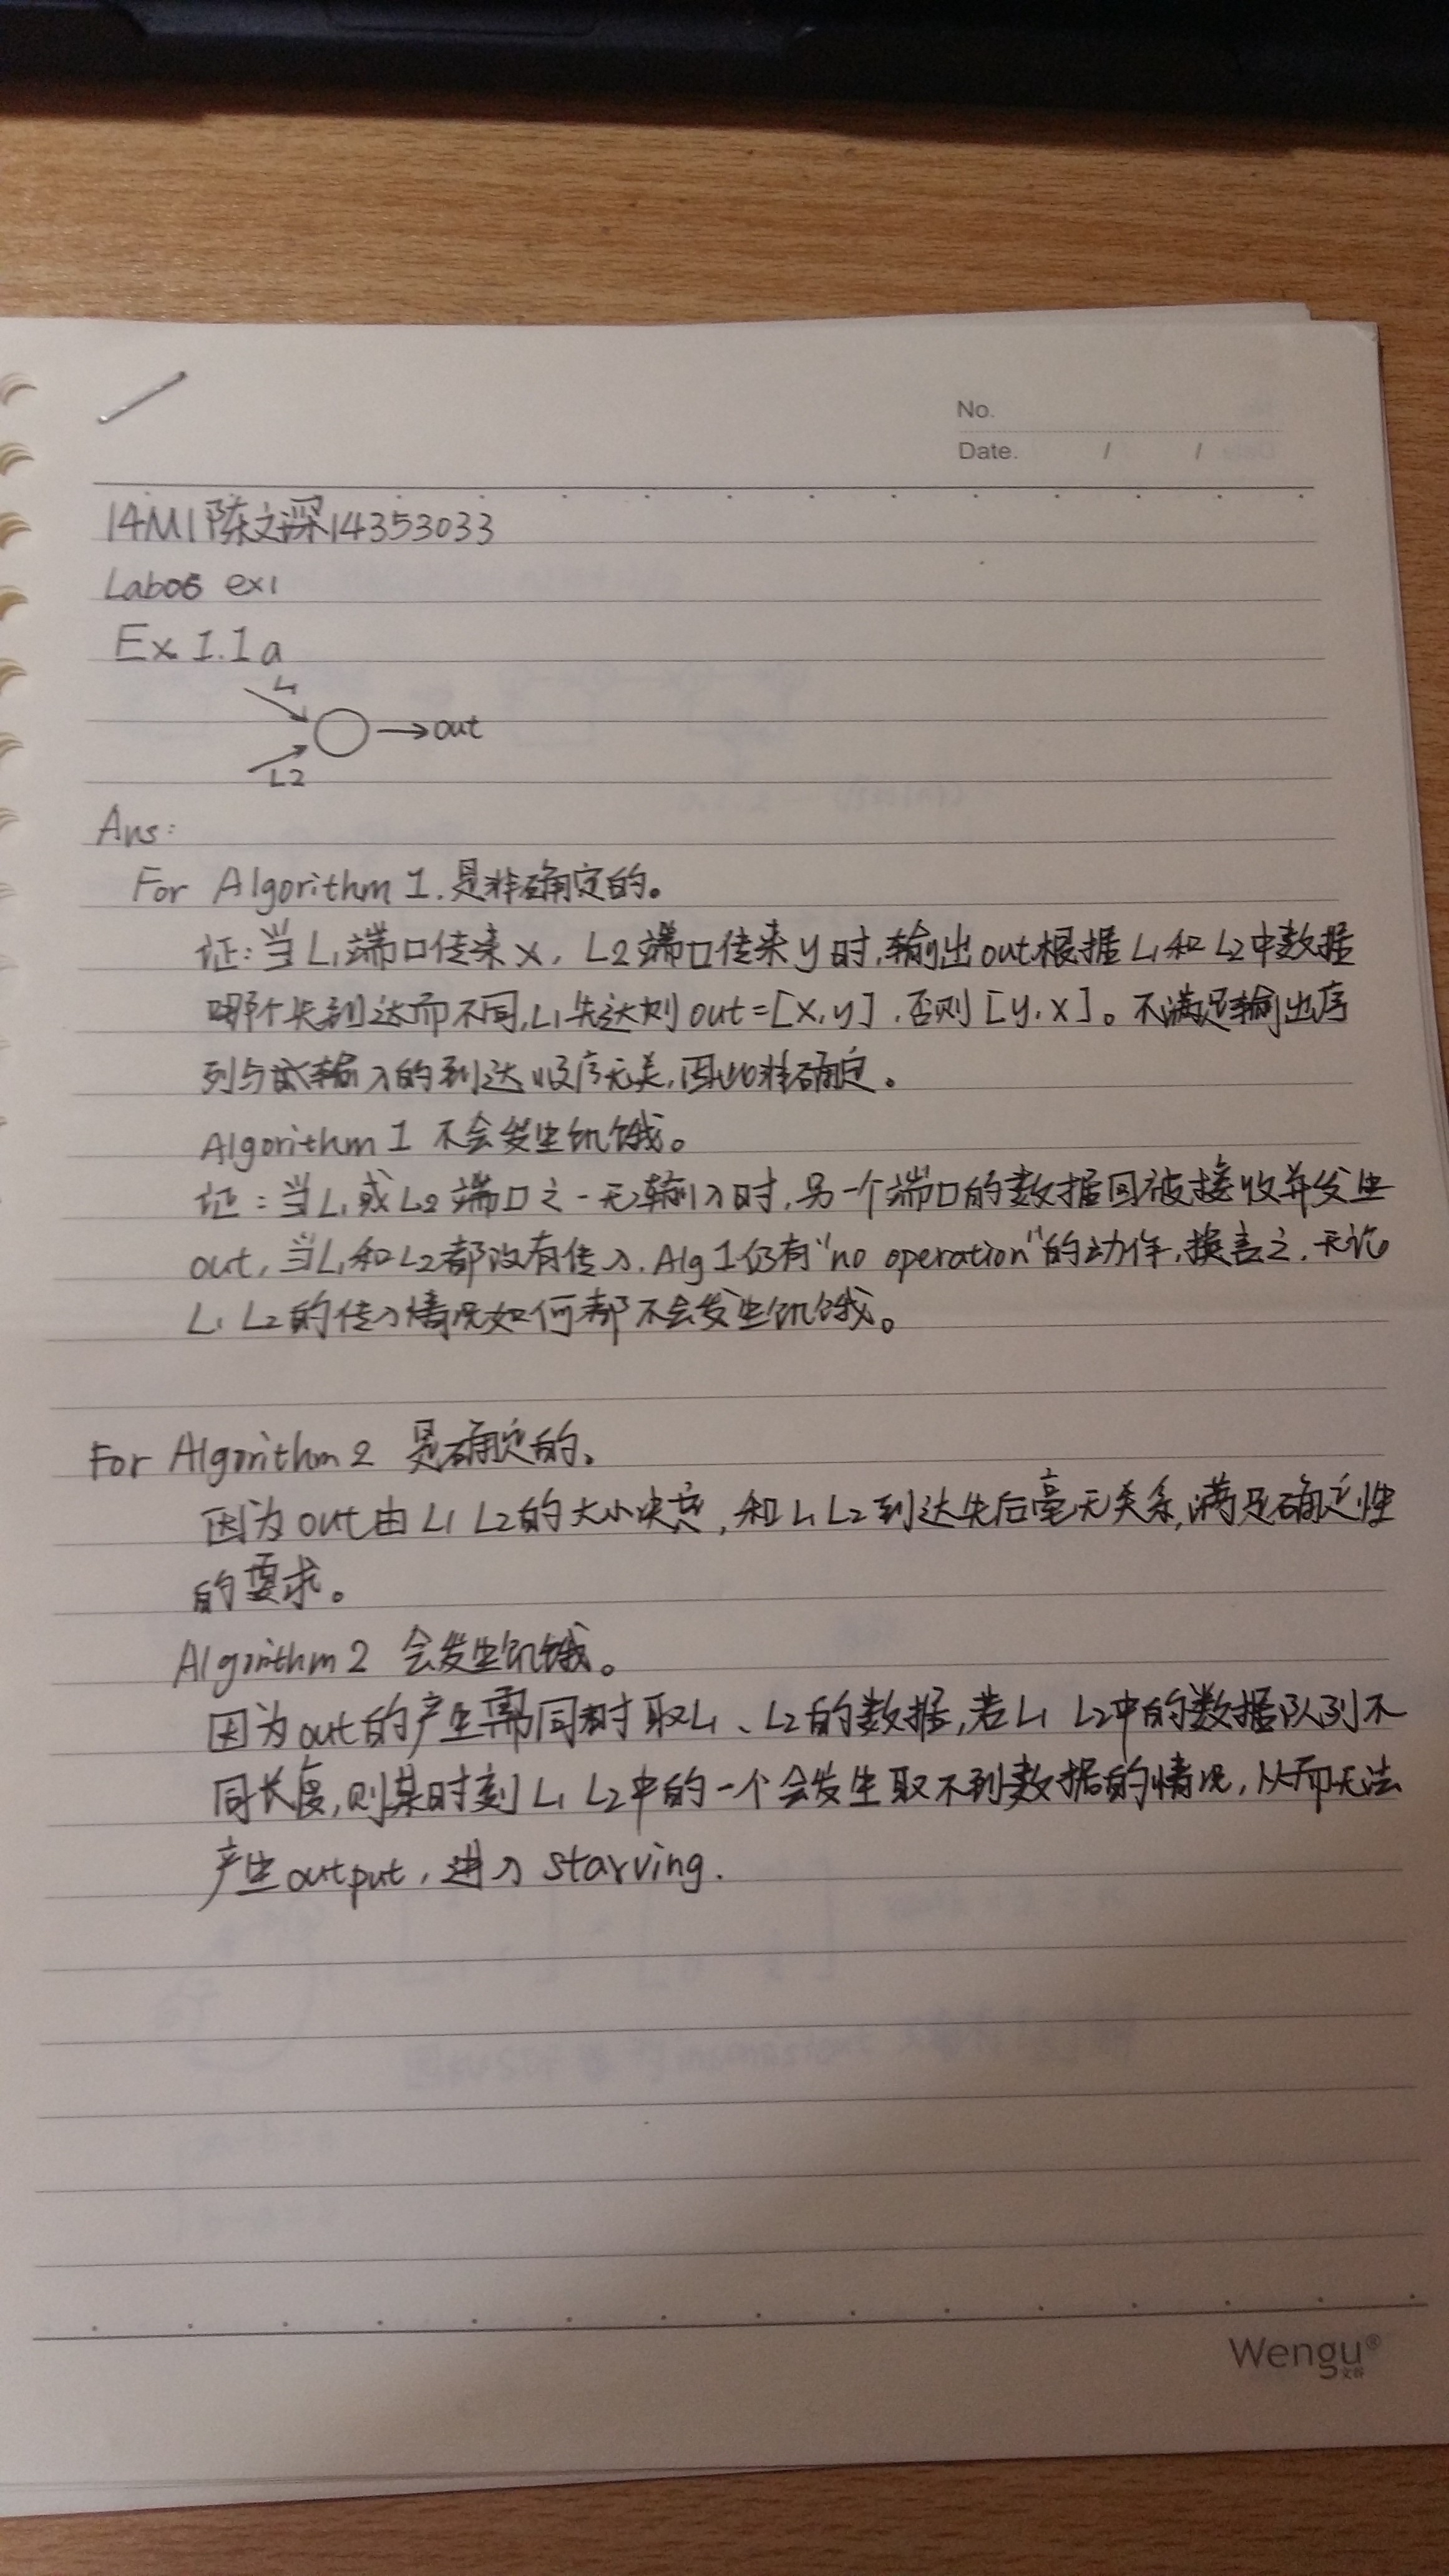 No.
Date. / /
14M1陈文深14353033
Lab06 ex1
Ex 1.1a
L1
out
L2
Ans:
For Algorithm 1.是非确定的。
证:当L1端口传来x, L2端口传来y时,输出out根据L1和L2中数据
哪个先到达而不同,L1先达则out=[x,y],否则[y,x]。不满足输出序
列与输入的到达顺序无关,因此非确定。
Algorithm 1 不会发生饥饿。
证:当L1或L2端口之一无输入时,另一个端口的数据回被接收并发生
out,当L1和L2都没有传入,Alg 1仍有"no operation"的动作,换言之,无论
L1 L2的传入情况如何都不会发生饥饿。
For Algorithm 2 是确定的。
因为out由L1 L2的大小决定,和L1 L2到达先后毫无关系,满足确定性
的要求。
Algorithm 2 会发生饥饿。
因为out的产生需同时取L1、L2的数据,若L1 L2中的数据队列不
同长度,则某时刻L1 L2中的一个会发生取不到数据的情况,从而无法
产生output,进入starving.
Wengu®